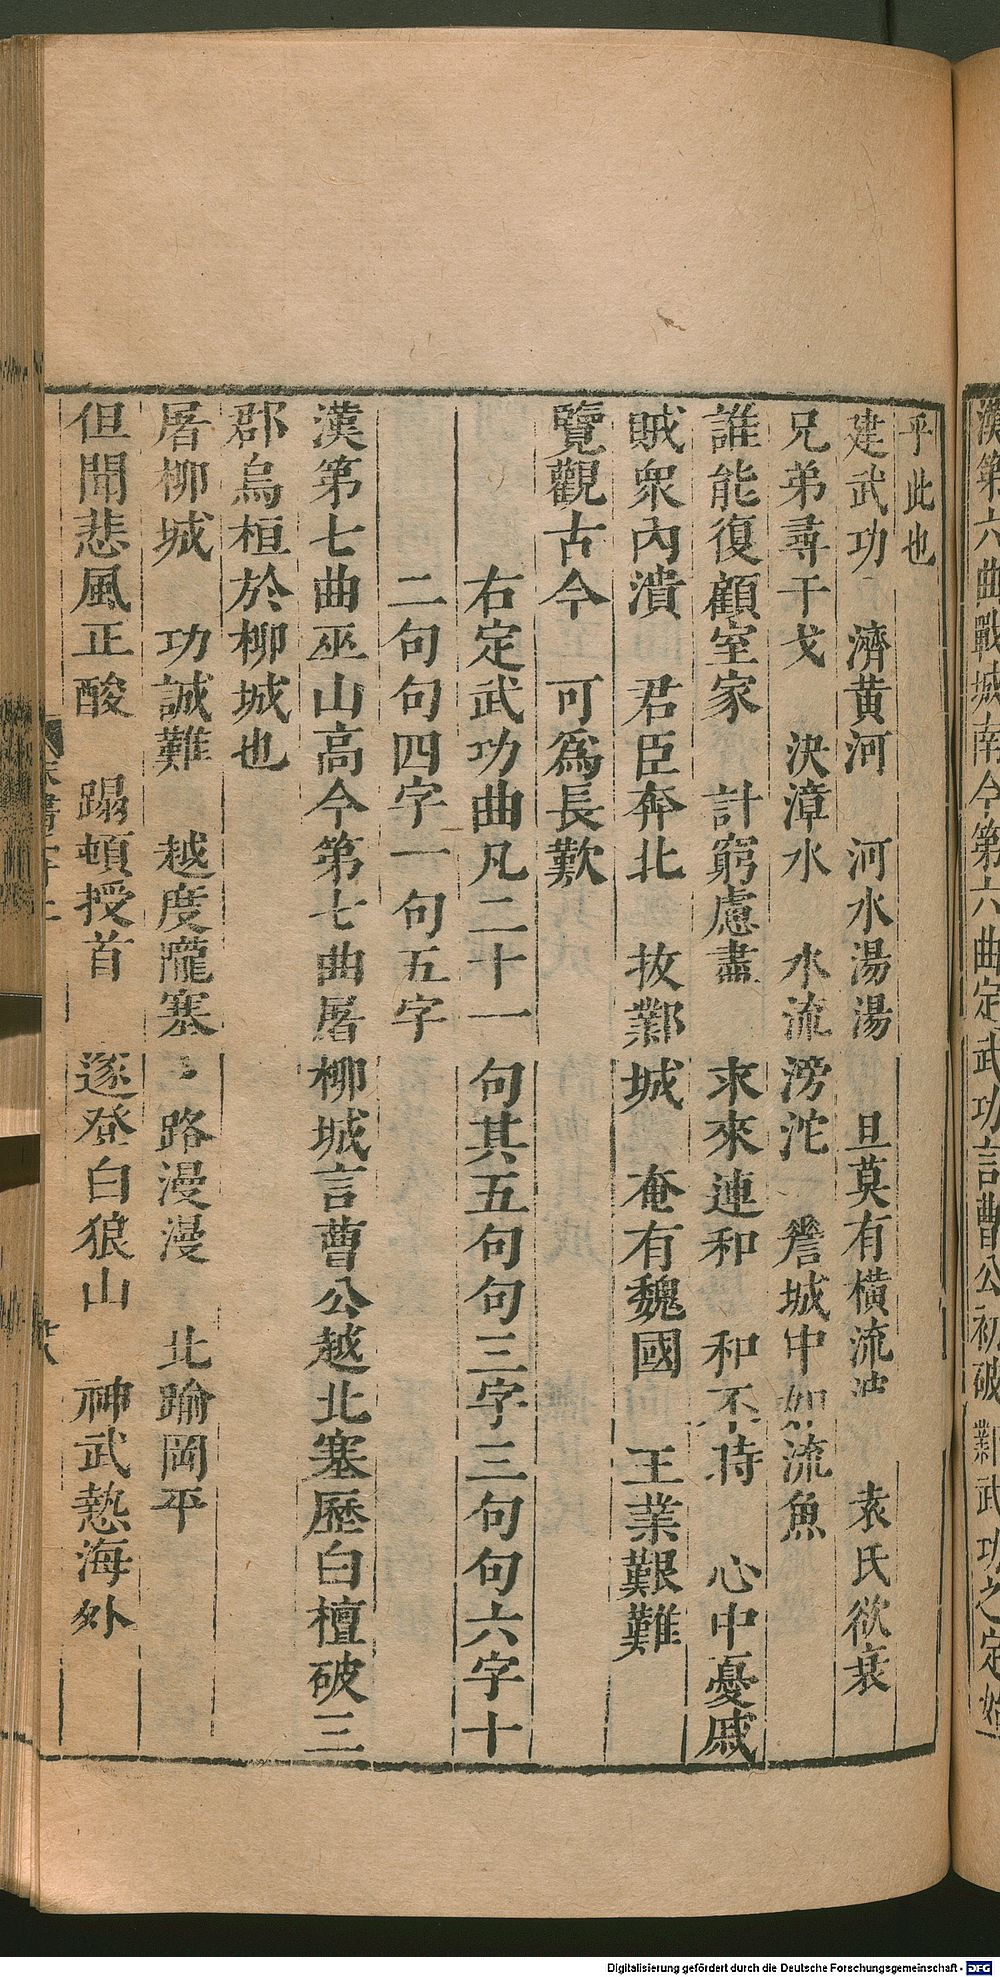 漢第六曲戰城南今第六曲定武功言曹公初破鄴武功之定始
乎此也
建武功 濟黄河 河水湯湯 旦莫有橫流波 袁氏欲衰
兄弟尋干戈 決漳水 水流滂沱 嗟城中如流魚
誰能復顧室家 計窮慮盡 求來連和 和不時 心中憂戚
賊衆內潰 君臣奔北 拔鄴城 奄有魏國 王業艱難
覽觀古今 可爲長歎
右定武功曲凡二十一句其五句句三字三句句六字十
二句句四字一句五字
漢第七曲巫山高今第七曲屠柳城言曹公越北塞歷白檀破三
郡烏桓於柳城也
屠柳城 功誠難 越度隴塞 路漫漫 北踰岡平
但聞悲風正酸 蹋頓授首 遂登白狼山 神武熱海外
Digitalisierung gefördert durch die Deutsche Forschungsgemeinschaft - DFG